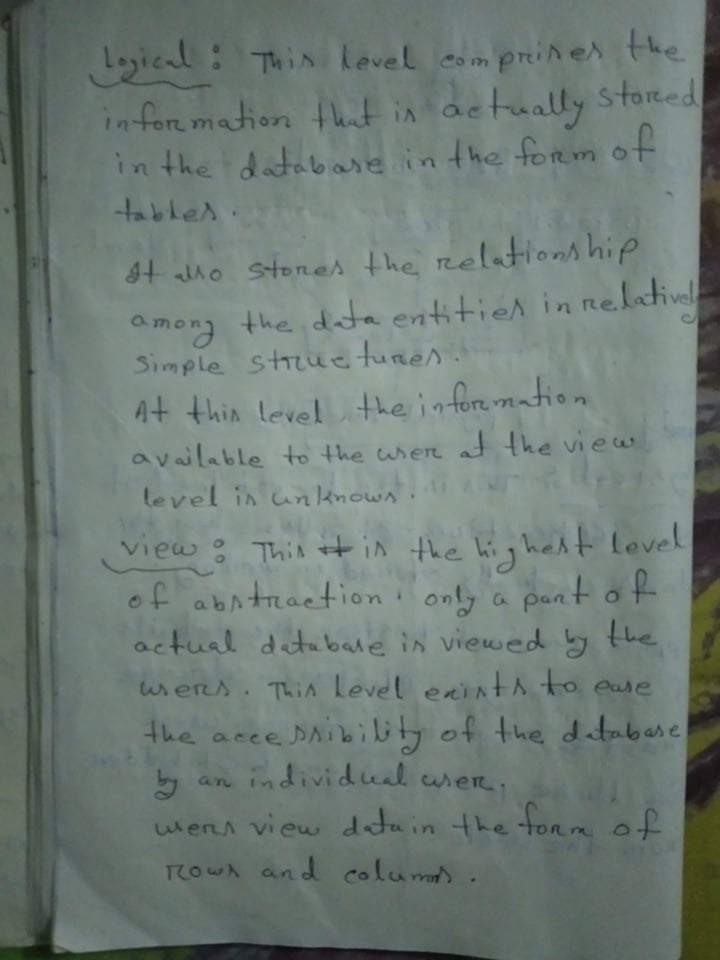 Logical : This level comprises the
information that is actually stored
in the database in the form of
tables.
It also stores the relationship
among the data entities in relatively
simple structures.
At this level, the information
available to the user at the view
level is unknows.
view : This it is the highest level
of abstraction. only a part of
actual database is viewed by the
users. This level exists to ease
the accessibility of the database
by an individual user.
users view data in the form of
rows and columns.